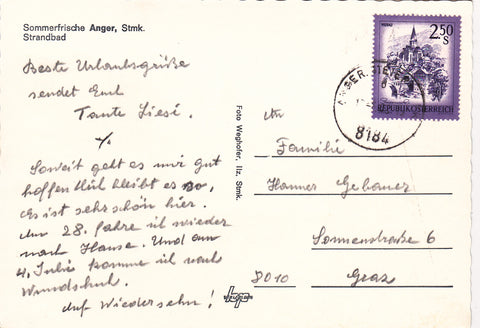 Sommerfrische Anger, Stmk.
Strandbad
Beste Urlaubsgrüße
sendet Euch
Tante Liesi.
Soweit geht es mir gut
hoffentlich bleibt es so,
Es ist sehr schön hier.
Am 28. fahre ich wieder
nach Hause. Und am
4. Juli komme ich nach
Wundschuh.
Auf Wiedersehn!
Foto Weghofer, Ilz, Stmk.
2.50
S
REPUBLIK ÖSTERREICH
8184
An
Familie
Hannes Gebauer
Sonnenstraße 6
8010 Graz